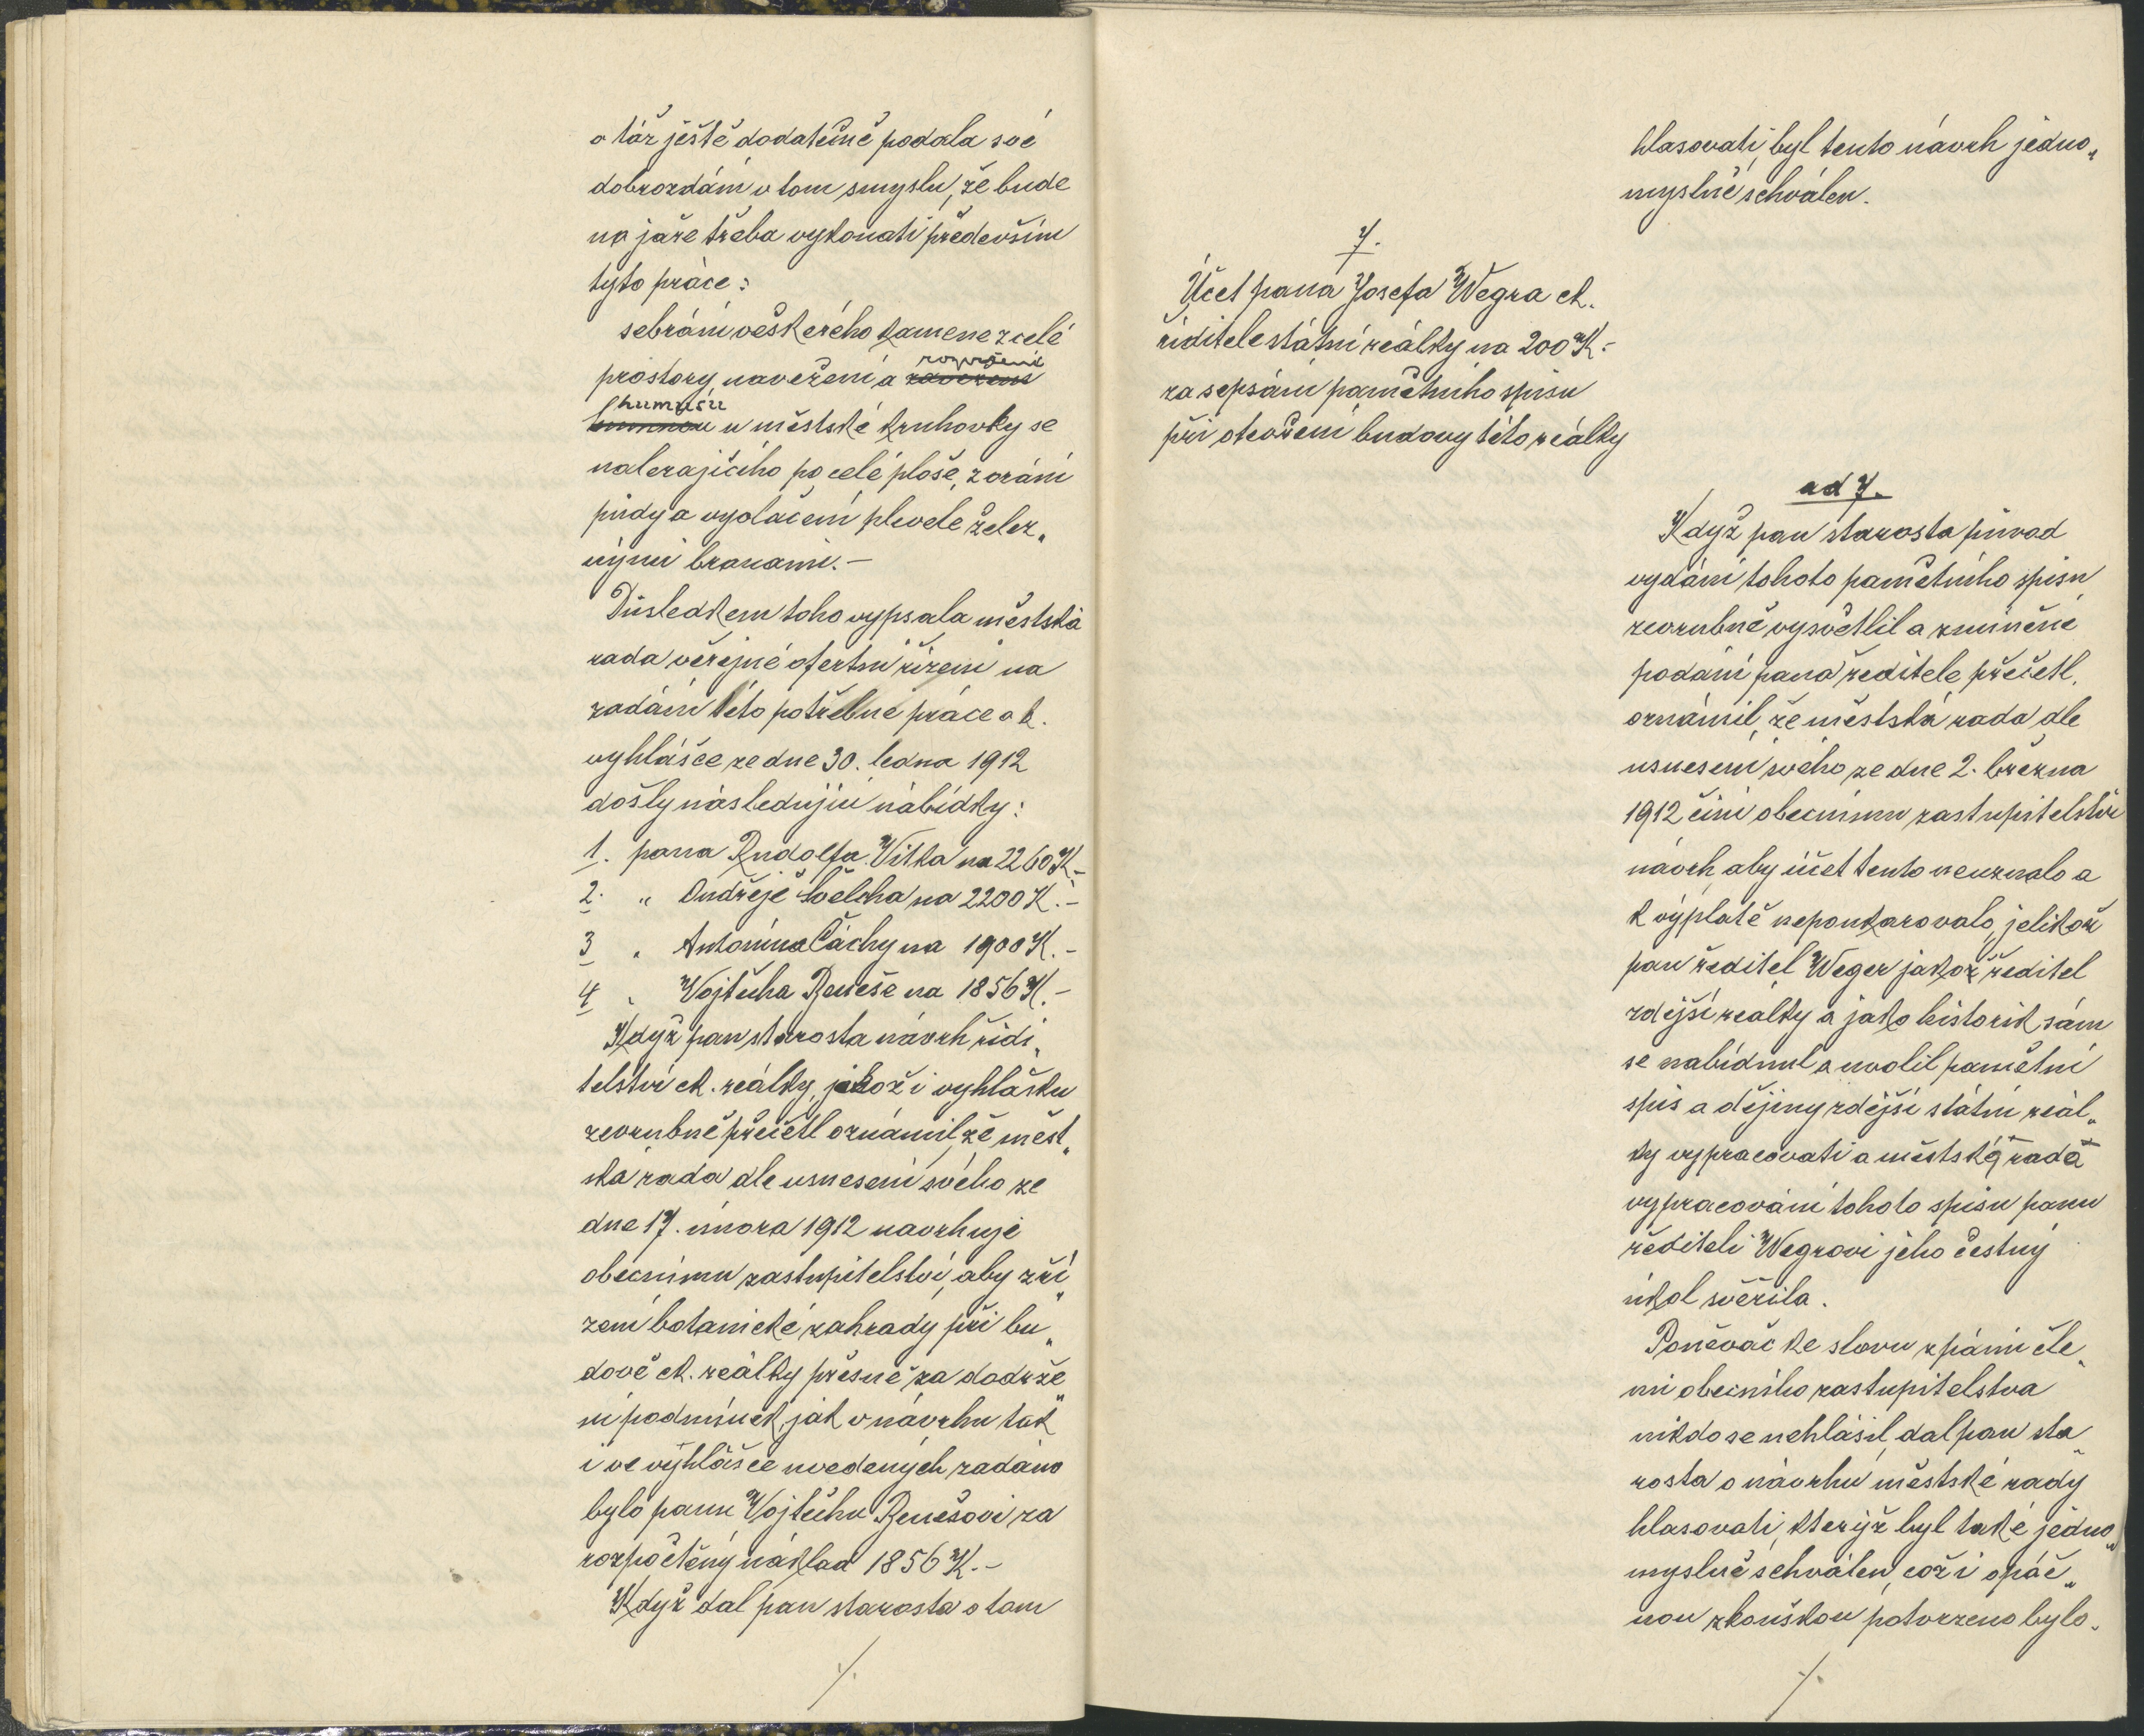 a táž ještě dodatečně podala své
dobrozdání v tom smyslu, že bude
na jaře třeba vykonati především
tyto práce:
sebrání veškerého kamene z celé
prostory, navežení a rozvožení
humusu u městské kruhovky se
nalezajícího po celé ploše, zorání
půdy a vyvláčení plevele želez„
nými branami.-
Důsledkem toho vypsala městská
rada veřejné ofertní řízení na
zadání této potřebné práce a k.
vyhlášce ze dne 30. ledna 1912
došly následující nabídky:
1. pana Rudolfa Vítka na 2260 K.-
2. „ Ondřeje Švelcha na 2200 K.-
3 „ Antonína Čáchy na 1900 K.-
4 „ Vojtěcha Beneše na 1856 K.-
Když pan starosta návrh řídi„
telství ck. reálky, jakož i vyhlášku
zevrubně přečetl oznámil, že měst„
ská rada dle usnesení svého ze
dne 17. února 1912 navrhuje
obecnímu zastupitelství, aby zří„
zení botanické zahrady při bu„
dově ck. reálky přesně za dodrže„
ní podmínek, jak v návrhu tak
i ve vyhlášce uvedených zadáno
bylo panu Vojtěchu Benešovi za
rozpočtěný náklad 1856 K.-
Když dal pan starosta o tom
./.
hlasovati, byl tento návrh jedno„
myslně schválen.
7.
Účet pana Josefa Wegra ck.
řiditele státní reálky na 200 K.-
za sepsání pamětního spisu
při otevření budovy této reálky
ad 7.
Když pan starosta původ
vydání tohoto pamětního spisu
zevrubně vysvětlil a zmíněné
podání pana ředitele přečetl,
oznámil, že městská rada dle
usnesení svého ze dne 2. března
1912 činí obecnímu zastupitelství
návrh, aby účet tento neuznalo a
k výplatě nepoukazovalo, jelikož
pan ředitel Weger jakož ředitel
zdější reálky a jako historik sám
se nabídnul a uvolil pamětní
spis a dějiny zdější státní reál„
ky vypracovati a městská rada
vypracování tohoto spisu panu
řediteli Wegrovi jeho čestný
úkol svěřila.
Poněvač ke slovu z pánů čle„
nů obecního zastupitelstva
nikdo se nehlásil, dal pan sta„
rosta o návrhu městské rady
hlasovati, kterýž byl také jedno„
myslně schválen, což i opáč„
nou zkouškou potvrzeno bylo.
./.